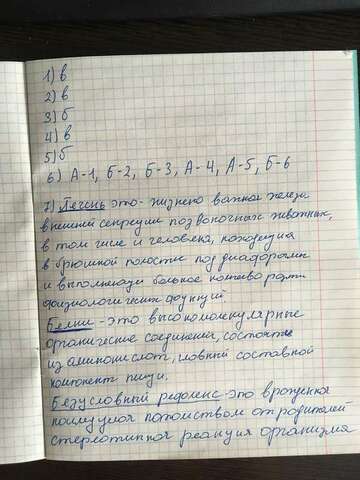 1) в
2) в
3) б
4) в
5) б
6) А-1, Б-2, Б-3, А-4, А-5, Б-6
7) Печень это - жизнено важная железа
внешней секреции позвоночных животных,
в том числе и человека, находящая
в брюшной полостие под диафрагмой
и выполняющая большое количество разли
физиологических функций.
Белки - это высокомолекулярные
органические соединений, состоящие
из аминокислот, главный составной
компонент пищи.
Безусловный рефлекс - это врожденная
потомством от родителей
стереотипная реакция организма